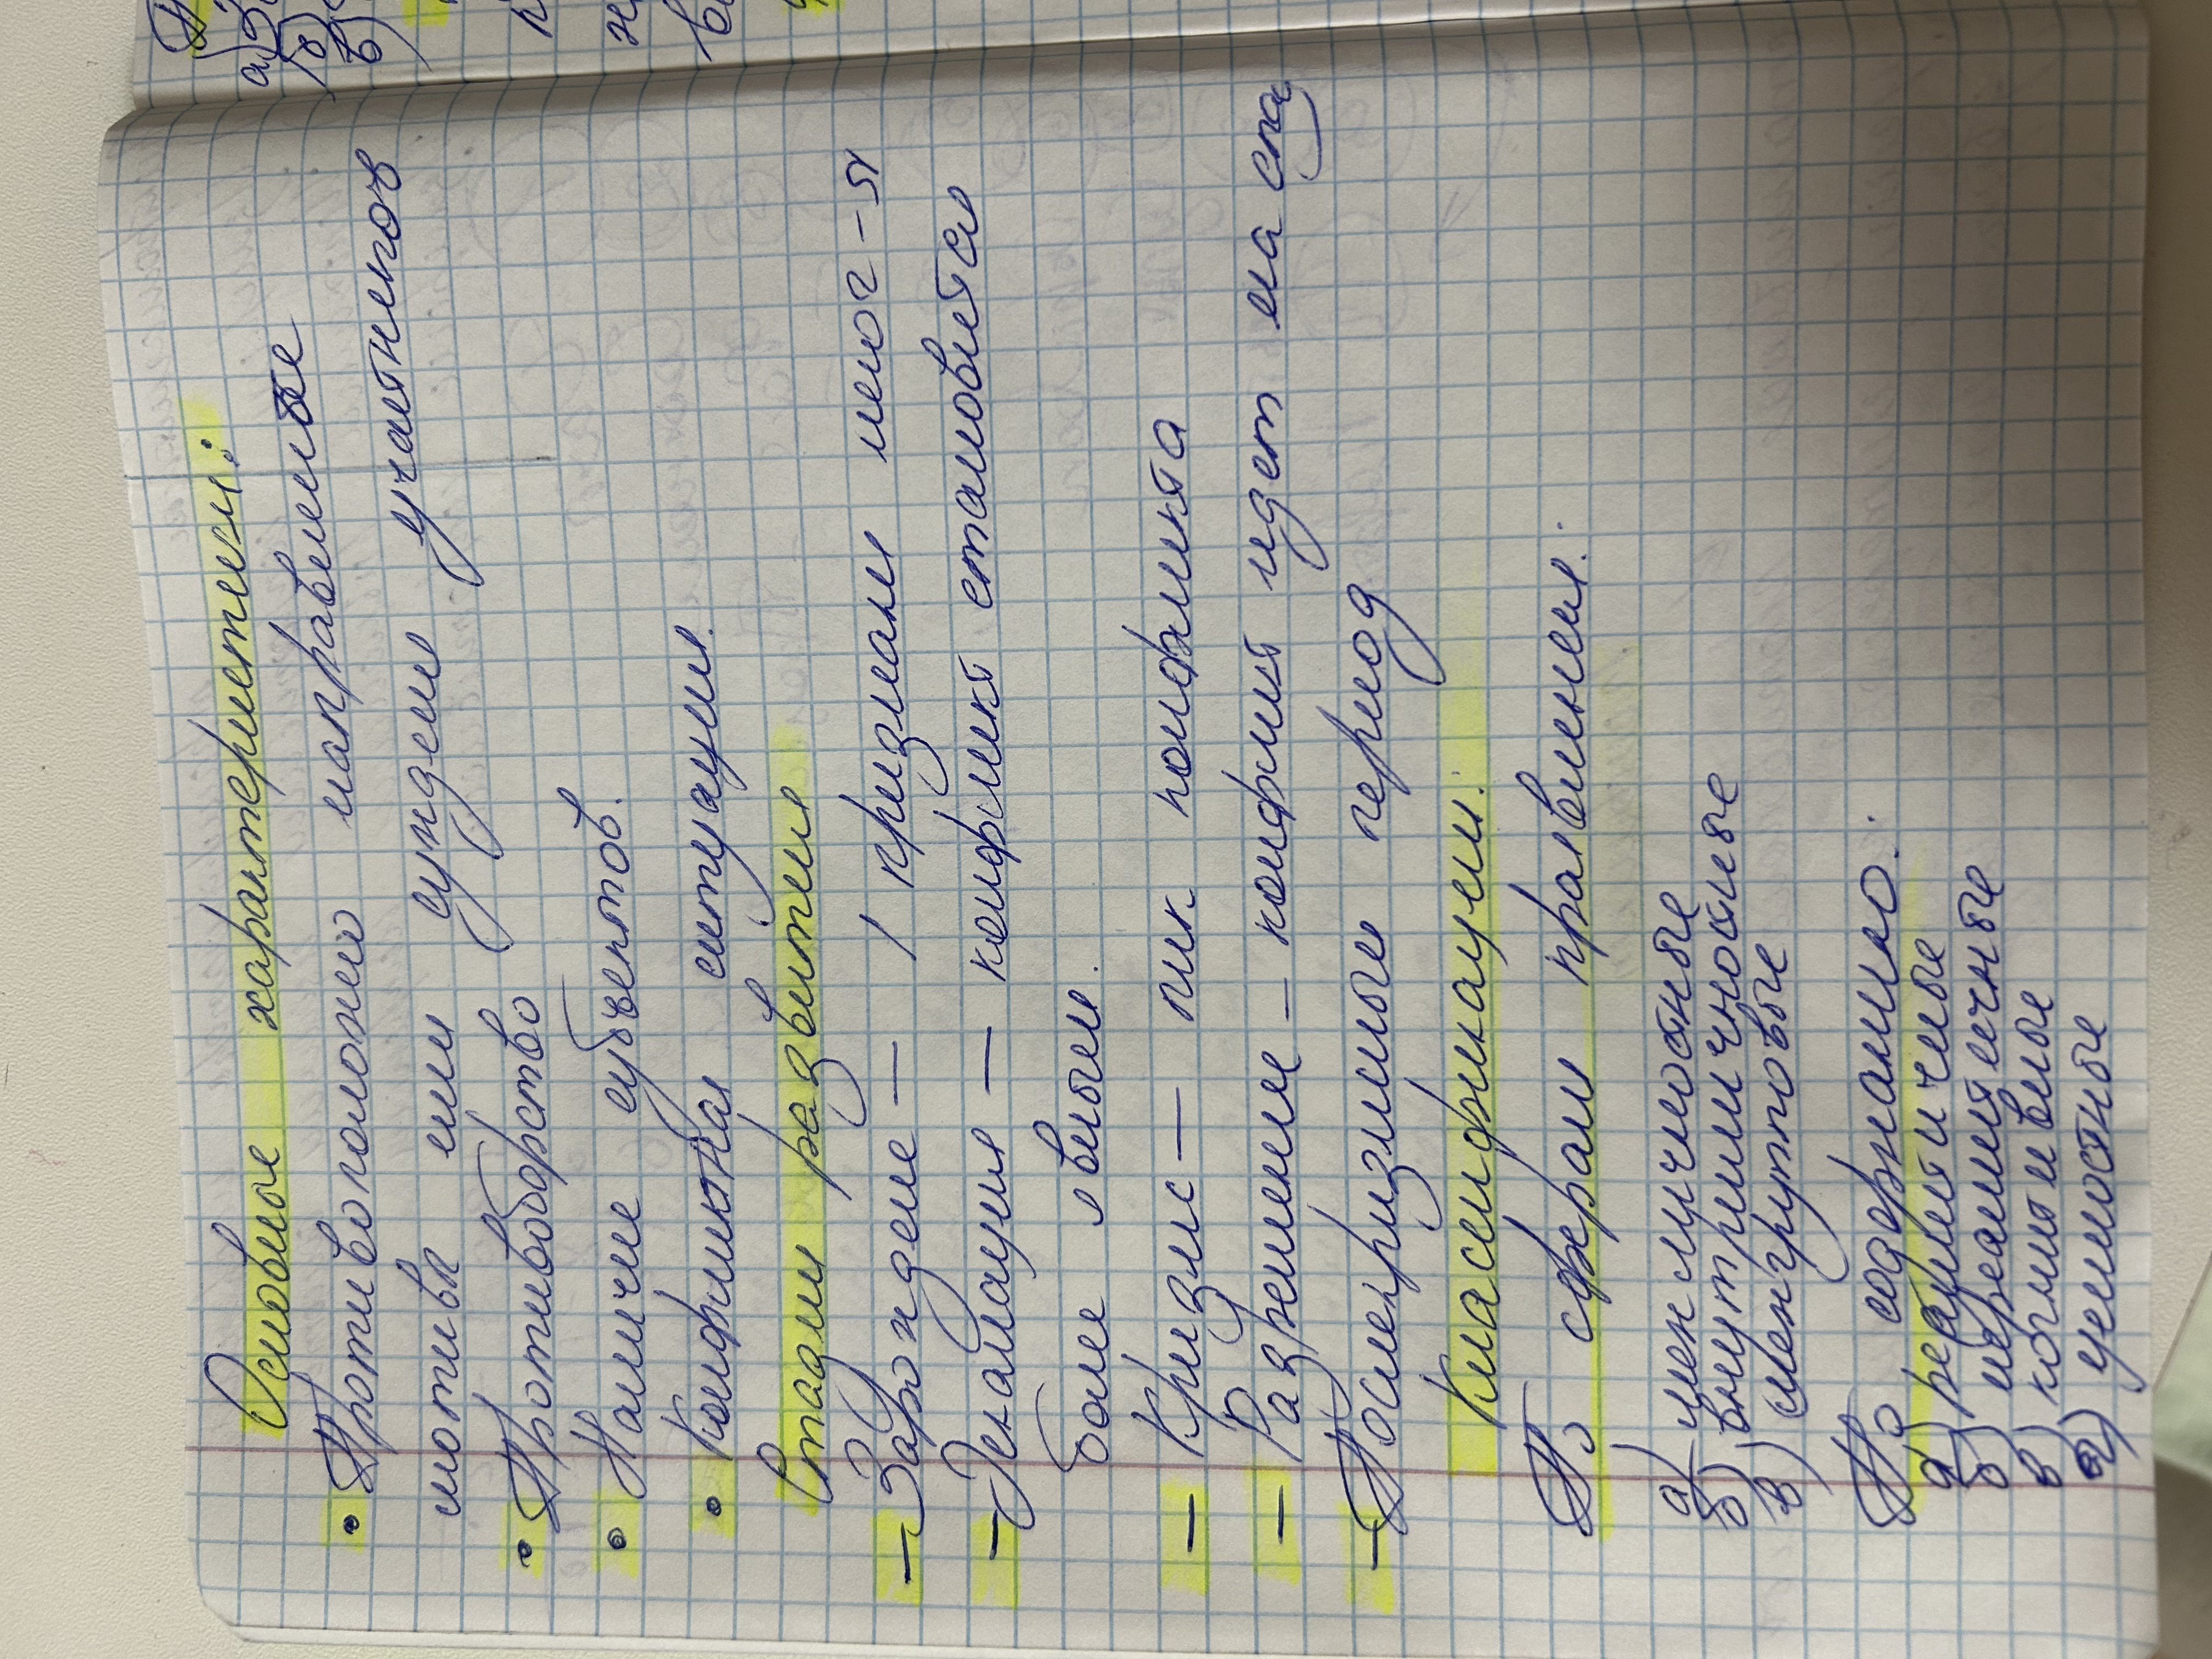 Основные характеристеки:
• Противоположно направленые
мотивы или суждени участнеков
• Противоборство
• Наличие субъектов.
• Конфликтная ситуация.
Стадии развития
— Зарождение — 1 признаки
— Эскалация — конфликт становится
боле явным.
— Кризис — пик конфликта
— Разрешение — конфликт идет на спад
— Послекризисный период
Класификации:
По сферам правления:
а) межличностные
б) внутриличностные
в) межгрупповые
По содержанию:
а) реалистичные
б) нереалистечные
в) когнитивные
г) ценностные